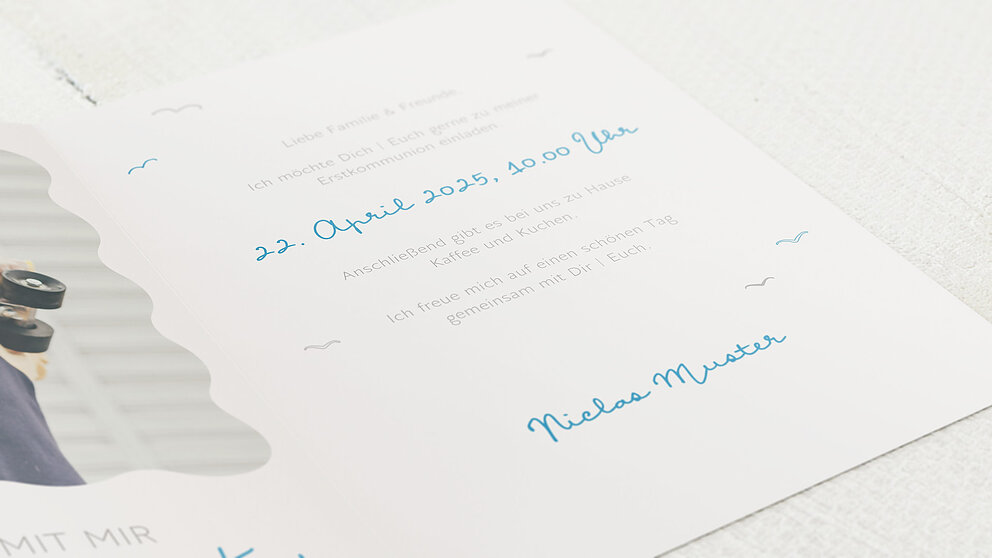 Liebe Familie & Freunde,
Ich möchte Dich | Euch gerne zu meiner
Erstkommunion einladen
22. April 2025, 10.00 Uhr
Anschließend gibt es bei uns zu Hause
Kaffee und Kuchen.
Ich freue mich auf einen schönen Tag
gemeinsam mit Dir | Euch.
Niclas Muster
MIT MIR